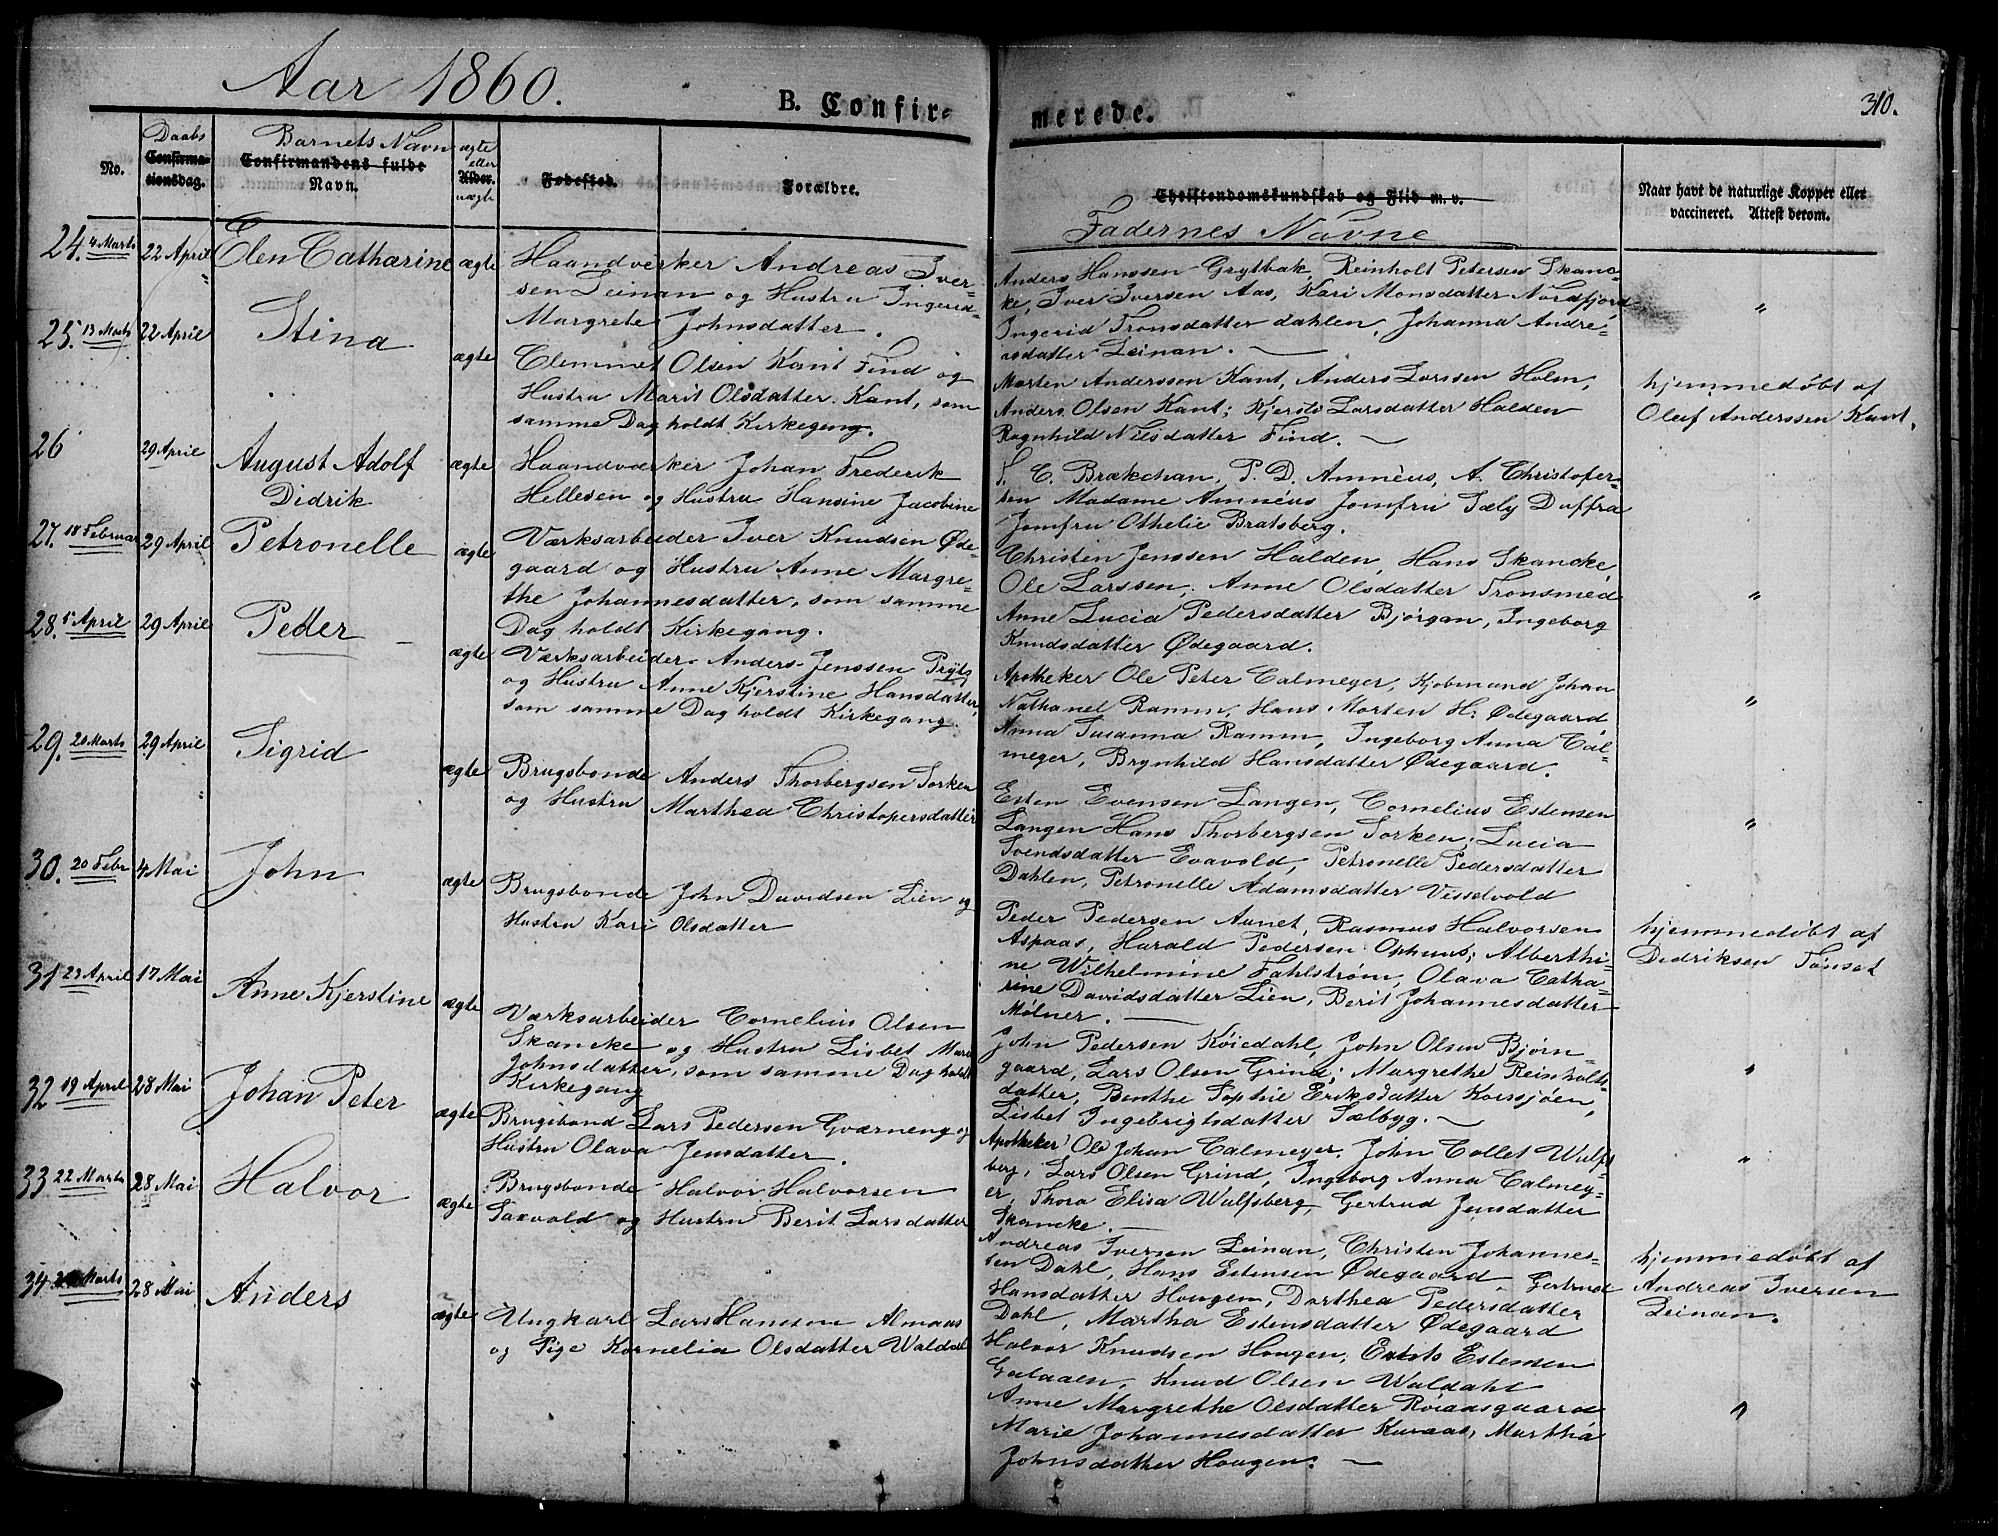 Aar 1860.
B. Confir-
merede.
310.
No.
Daabs
Confirma-
tionsdag.
Barnets Navn
Confirmandens fulde
Navn.
ægte
eller
Alder.
uægte
Fødested.
Forældre.
Christendomskundskab og Flid m. v.
Faddernes Navne
Naar havt de naturlige Kopper eller
vaccineret. Attest derom.
24. 4 Marts 22 April Elen Catharine ægte
Haandverker Andreas Iver-
sen Leinan og Hustru Ingerid
Margrete Johnsdatter.
Anders Hanssen Grytbak, Reinholt Petersen Skanc-
ke, Iver Iversen Aas, Kari Monsdatter Nordfjord
Ingerid Tronsdatter dahlen, Johanna Andre-
asdatter Leinan. —
"
25. 13 Marts 22 April Stina ægte
Clemmet Olsen Kant Find og
Hustru Marit Olsdatter Kant, som
samme Dag holdt Kirkegang.
Morten Anderssen Kant, Anders Larssen Holm,
Anders Olsen Kant; Kjersti Larsdatter Halden
Ragnhild Nilsdatter Find. —
hjemmedøbt af
Oluf Anderssen Kant.
26 29 April August Adolf
Didrik
ægte
Haandværker Johan Frederik
Hellesen og Hustru Hansine Jacobine
T. C. Brækchan, P. D. Amnéus, A. Christofer-
sen Madame Amnéus Jomfru Sæly Daffra
Jomfru Othelie Bratsberg.
"
27. 18 Februar 29 April Petronelle ægte
Værksarbeider Iver Knudsen Øde-
gaard og Hustru Anne Margre-
the Johannesdatter, som samme
Dag holdt Kirkegang.
Christen Jenssen Halden, Hans Skancke,
Ole Larssen, Anne Olsdatter Tronsmed
Anne Lucia Pedersdatter Bjørgan, Ingeborg
Knudsdatter Ødegaard.
"
28. 5 April 29 April Peder — ægte
Værksarbeider Anders Jenssen Prytz
og Hustru Anne Kjerstine Hansdatter,
som samme Dag holdt Kirkegang.
Apotheker Ole Peter Calmeyer, Kjøbmand Johan
Nathanel Ramm, Hans Morten H. Ødegaard,
Anna Susanna Ramm, Ingeborg Anna Cal-
meyer, Brynhild Hansdatter Ødegaard.
"
29. 20 Marts 29 April Sigrid ægte
Brugsbonde Anders Thorbergsen Sorken
og Hustru Marthea Christopersdatter
Esten Evensen Langen, Cornelius Estensen
Langen Hans Thorbergsen Sorken, Lucia
Svendsdatter Evavold, Petronelle Pedersdatter
Dahlen, Petronelle Adamsdatter Visselvold
"
30. 20 Febr 4 Mai John ægte
Brugsbonde John Davidsen Lien og
Hustru Kari Olsdatter
Peder Pedersen Aunet, Rasmus Halvorsen
Aspaas, Harald Pedersen Ophuus; Alberthi-
ne Wilhelmine Fahlstrøm, Olava Catha-
rine Davidsdatter Lien, Berit Johannesdatter
Mølner. —
hjemmedøbt af
Didriksen Tønset
31 23 April 17 Mai Anne Kjerstine ægte
Værksarbeider Cornelius Olsen
Skancke og Hustru Lisbet Marie
Johnsdatter, som samme Dag holdt
Kirkegang
John Pedersen Køiedahl, John Olsen Bjørn-
gaard, Lars Olsen Grind; Margrethe Reinholts-
datter, Benthe Sophie Eriksdatter Korssjøen,
Lisbet Ingebrigtsdatter Sælbyg. —
"
32 19 April 28 Mai Johan Peter ægte
Brugsbond Lars Pedersen Gværneng og
Hustru Olava Jensdatter.
Apotheker Ole Johan Calmeyer, John Collet Wulfs
berg, Lars Olsen Grind, Ingeborg Anna Calmey-
er, Thora Elisa Wulfsberg, Gertrud Jensdatter
Skancke. —
"
33 22 Marts 28 Mai Halvor ægte
Brugsbonde Halvor Halvorsen
Saxvold og Hustru Berit Larsdatter
Andreas Iversen Leinan, Christen Johannes-
sen Dahl, Hans Estensen Ødegaard, Gertrud
Hansdatter Hougen, Dorthea Pedersdatter
Dahl, Martha Estensdatter Ødegaard
hjemmedøbt af
Andreas Iversen
Leinan.
34 Marts 28 Mai Anders ægte
Ungkarl Lars Hansen Almaas
og Pige Kornelia Olsdatter Waldahl
Halvor Knudsen Hougen, Estensen
Galaaen, Knud Olsen Waldahl
Anne Margrethe Olsdatter Røiaasgaard
Marie Johannesdatter Kuraas, Martha
Johnsdatter Hougen. —
"